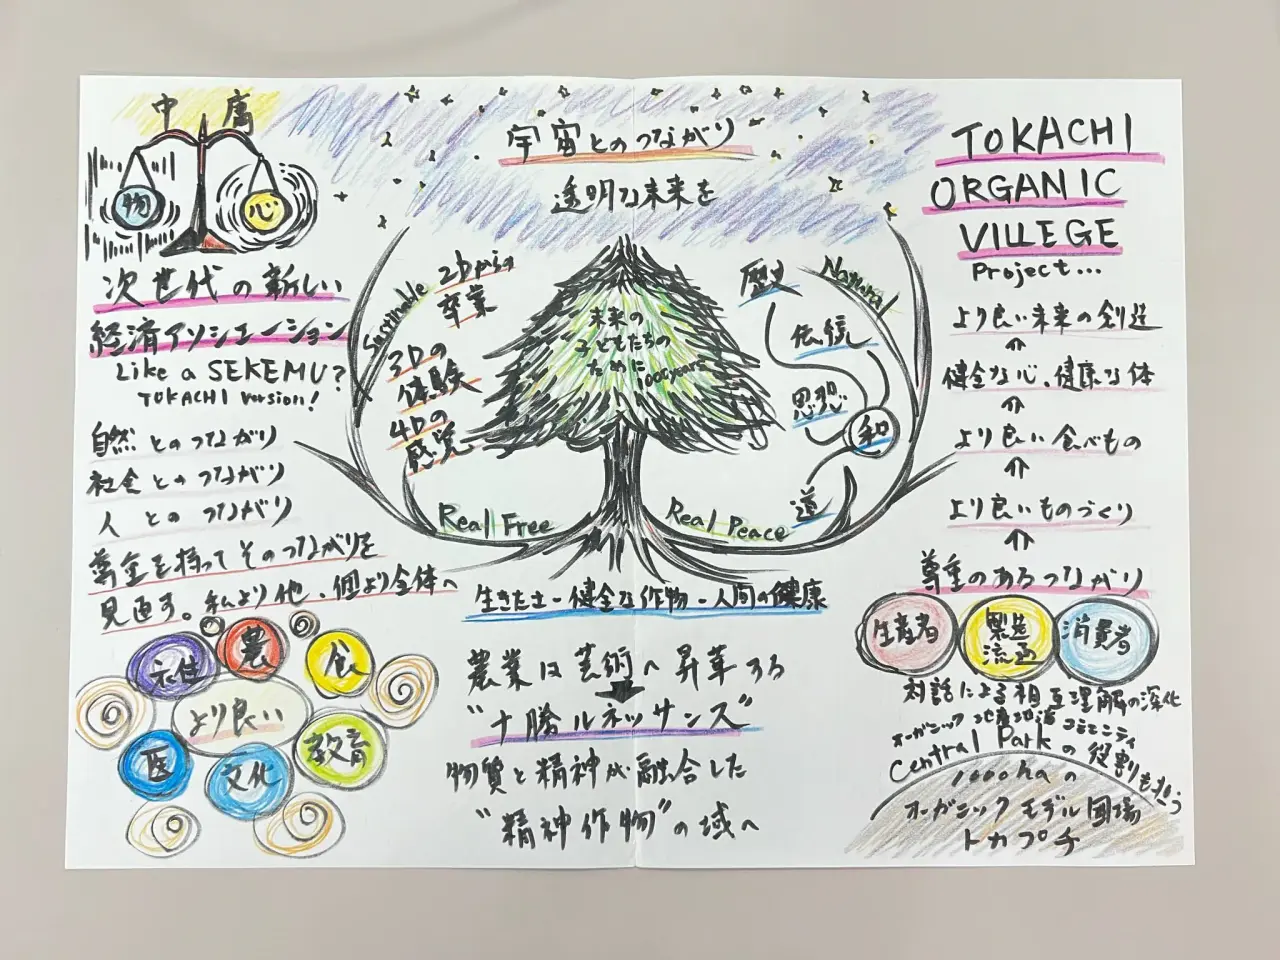 中庸
物
心
次世代の新しい
経済アソシエーション
Like a SEKEMU?
TOKACHI version!
自然とのつながり
社会とのつながり
人とのつながり
尊金を持ってそのつながりを
見直す。私より他、個より全体へ
農
食
衣住
より良い
医
文化
教育
宇宙とのつながり
透明な未来を
Sustinable
2Dからの
卒業
3Dの
体験
4Dの
感覚
未来の
子どもたちの
ために
1000years
Natural
歴史
伝統
思想
和
道
Real Free
Real Peace
生きた土-健全な作物-人間の健康
農業は芸術へ昇華する
"十勝ルネッサンス"
物質と精神が融合した
"精神作物"の域へ
TOKACHI
ORGANIC
VILLEGE
Project...
より良い未来の創造
健全な心、健康な体
より良い食べもの
より良いものづくり
尊重のあるつながり
生産者
製造
流通
消費者
対話による相互理解の深化
オーガニック地産地消コミュニティ
Central Parkの役割も担う
1000haの
オーガニックモデル圃場
トカプチ